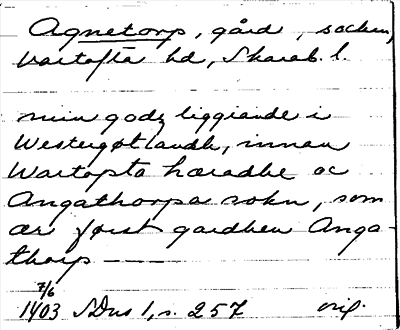 Agnetorp, gård, socken,
Vartofta hd, Skarab. l.
min godz liggiande i
Westergøtlandh, innan
Wartopta hæradhe oc
Angathorpa sokn, som
ær førist gardhen Anga-
thorp ——
7/6
1403 SDns 1, s. 257 orig.